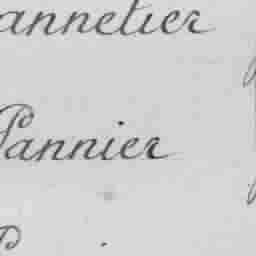 annetier
Pannier